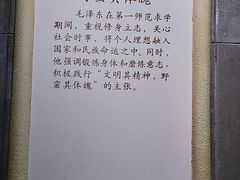 毛泽东在第一师范求学
期间，重视修身立志，关心
社会时事，将个人理想融入
国家和民族命运之中。同时，
他强调锻炼身体和磨炼意志，
积极践行“文明其精神，野
蛮其体魄”的主张。